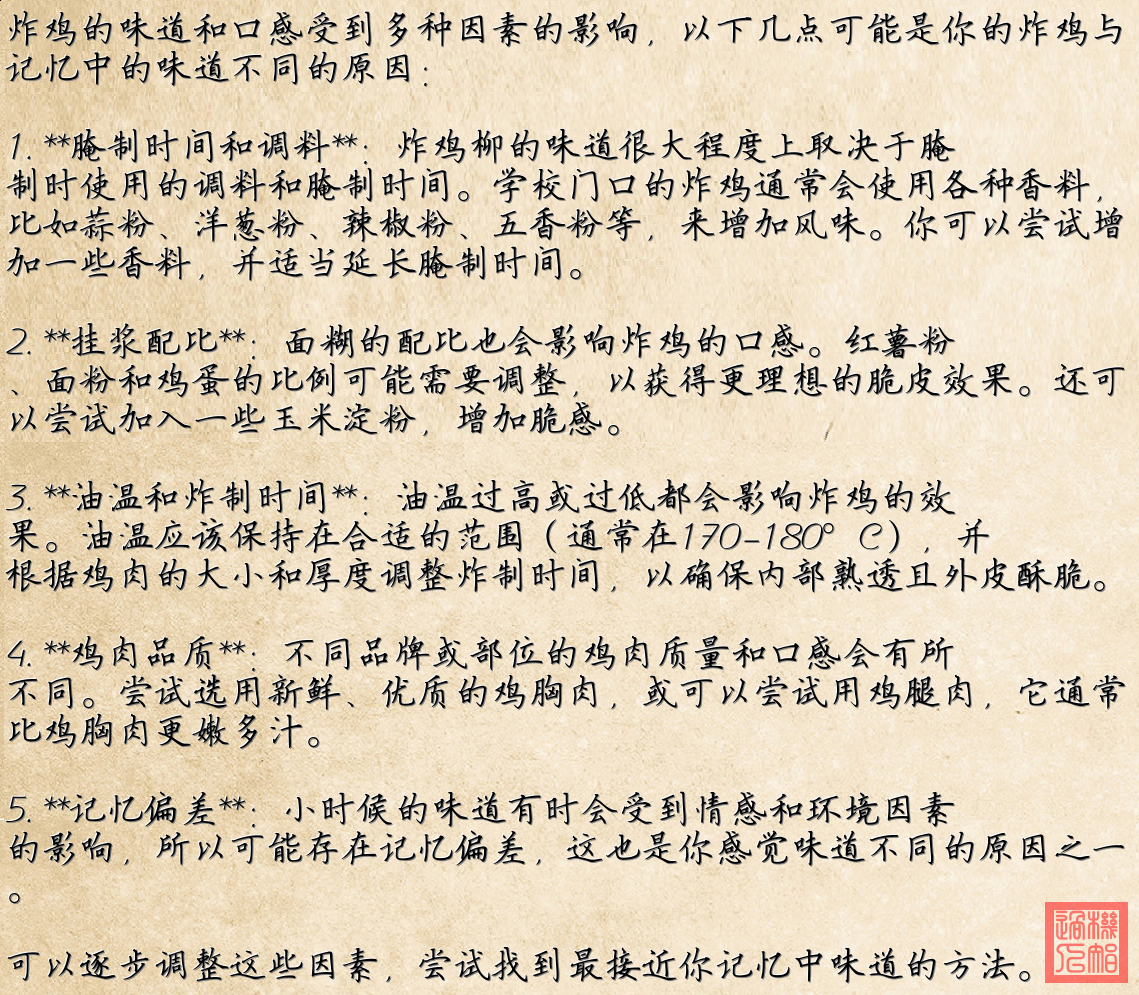 炸鸡的味道和口感受到多种因素的影响，以下几点可能是你的炸鸡与
记忆中的味道不同的原因：
1. **腌制时间和调料**：炸鸡柳的味道很大程度上取决于腌
制时使用的调料和腌制时间。学校门口的炸鸡通常会使用各种香料，
比如蒜粉、洋葱粉、辣椒粉、五香粉等，来增加风味。你可以尝试增
加一些香料，并适当延长腌制时间。
2. **挂浆配比**：面糊的配比也会影响炸鸡的口感。红薯粉
、面粉和鸡蛋的比例可能需要调整，以获得更理想的脆皮效果。还可
以尝试加入一些玉米淀粉，增加脆感。
3. **油温和炸制时间**：油温过高或过低都会影响炸鸡的效
果。油温应该保持在合适的范围（通常在170-180°C），并
根据鸡肉的大小和厚度调整炸制时间，以确保内部熟透且外皮酥脆。
4. **鸡肉品质**：不同品牌或部位的鸡肉质量和口感会有所
不同。尝试选用新鲜、优质的鸡胸肉，或可以尝试用鸡腿肉，它通常
比鸡胸肉更嫩多汁。
5. **记忆偏差**：小时候的味道有时会受到情感和环境因素
的影响，所以可能存在记忆偏差，这也是你感觉味道不同的原因之一
。
可以逐步调整这些因素，尝试找到最接近你记忆中味道的方法。